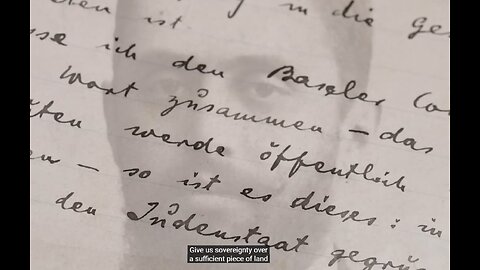 ist in die ge
sse ich den Baseler Co
Wort zusammen – das
üten werde öffentlich
en – so ist es dieses: in
den Judenstaat gegrü
Give us sovereignty over
a sufficient piece of land